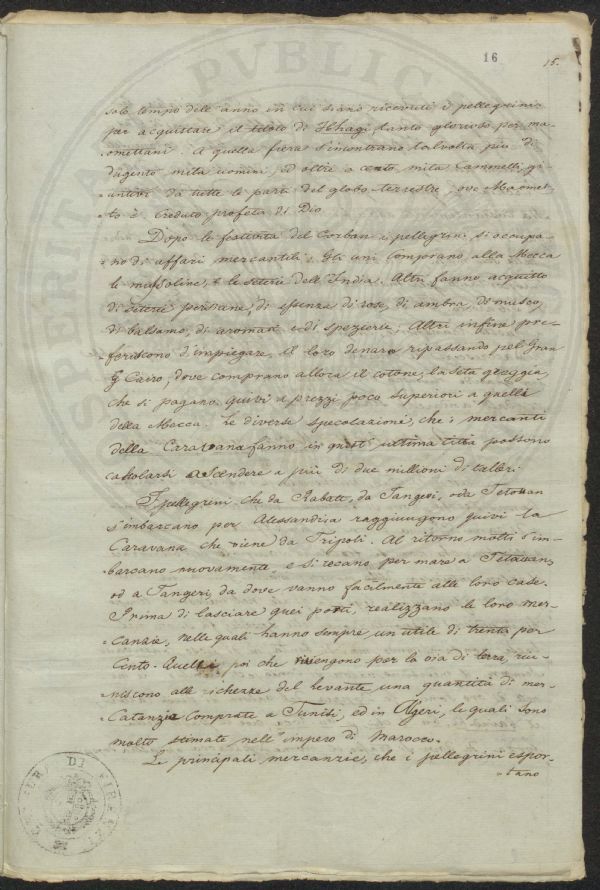 16
15.
solo tempo dell'anno in cui siano ricevuti i pellegrini
per acquistare il titolo di Hhagi, tanto glorioso per ma-
omettani. A quella fiera s'incontrano talvolta più di
dugento mila uomini, ed oltre a cento mila cammelli, gi-
untivi da tutte le parti del globo terrestre, ove Maomet-
to è creduto profeta di Dio
Dopo le festività del Corban i pellegrini si occupa-
no di affari mercantili. Gli uni comprano alla Mecca
le mussoline, e le seterie dell'India. Altri fanno acquisto
di seterie persiane, di essenza di rose, di ambra, di musco,
di balsamo, di aromati e di spezierie; Altri infine pre-
feriscono d'impiegare il loro denaro ripassando pel Gran
Cairo, dove comprano allora il cotone, la seta greggia,
che si pagano quivi a prezzi poco superiori a quelli
della Mecca. Le diverse specolazioni, che i mercanti
della Caravana fanno in quest'ultima città possono
calcolarsi ascendere a più di due millioni di talleri.
I pellegrini che da Rabatt, da Tangeri, o da Tetouan
s'imbarcano per Alessandria raggiungono quivi la
Caravana che viene da Tripoli. Al ritorno molti s'im-
barcano nuovamente, e si recano per mare a Tetauan,
od a Tangeri, da dove vanno facilmente alle loro case.
Prima di lasciare quei porti, realizzano le loro mer-
canzie, nelle quali hanno sempre un utile di trenta per
Cento. Quelli poi che rivengono per la via di terra, riu-
niscono alle richezze del levante una quantità di mer-
catanzie comprate a Tunisi, ed in Algeri, le quali sono
molto stimate nell'impero di Marocco.
Le principali mercanzie, che i pellegrini espor-
tano
DI FIRENZE